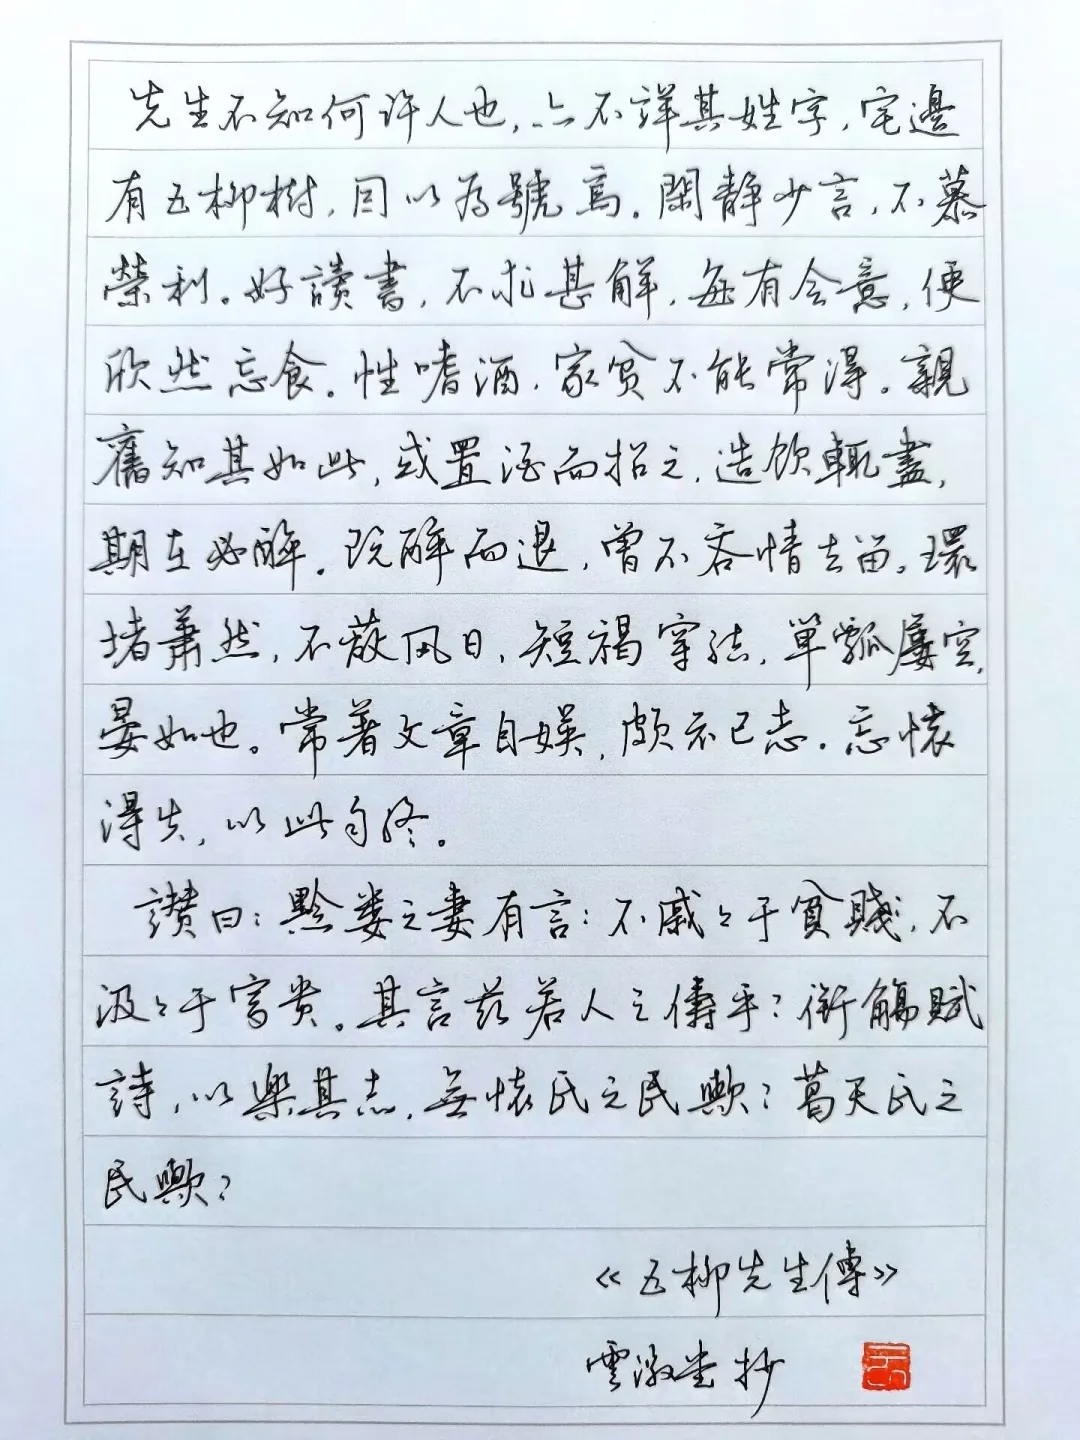 先生不知何许人也,亦不詳其姓字,宅邊
有五柳樹,因以為號焉。閑静少言,不慕
榮利。好讀書,不求甚解,每有会意,便
欣然忘食。性嗜酒,家贫不能常得。親
舊知其如此,或置酒而招之,造饮輒盡,
期在必醉。既醉而退,曾不吝情去留。環
堵蕭然,不蔽风日,短褐穿结,單瓢屢空,
晏如也。常著文章自娱,颇示已志。忘懷
得失,以此自终。
讃曰:黔娄之妻有言:不戚々于貧賤,不
汲々于富贵。其言兹若人之儔乎?銜觴賦
詩,以樂其志,無懷氏之民歟?葛天氏之
民歟?
《五柳先生傳》
雲激堂抄